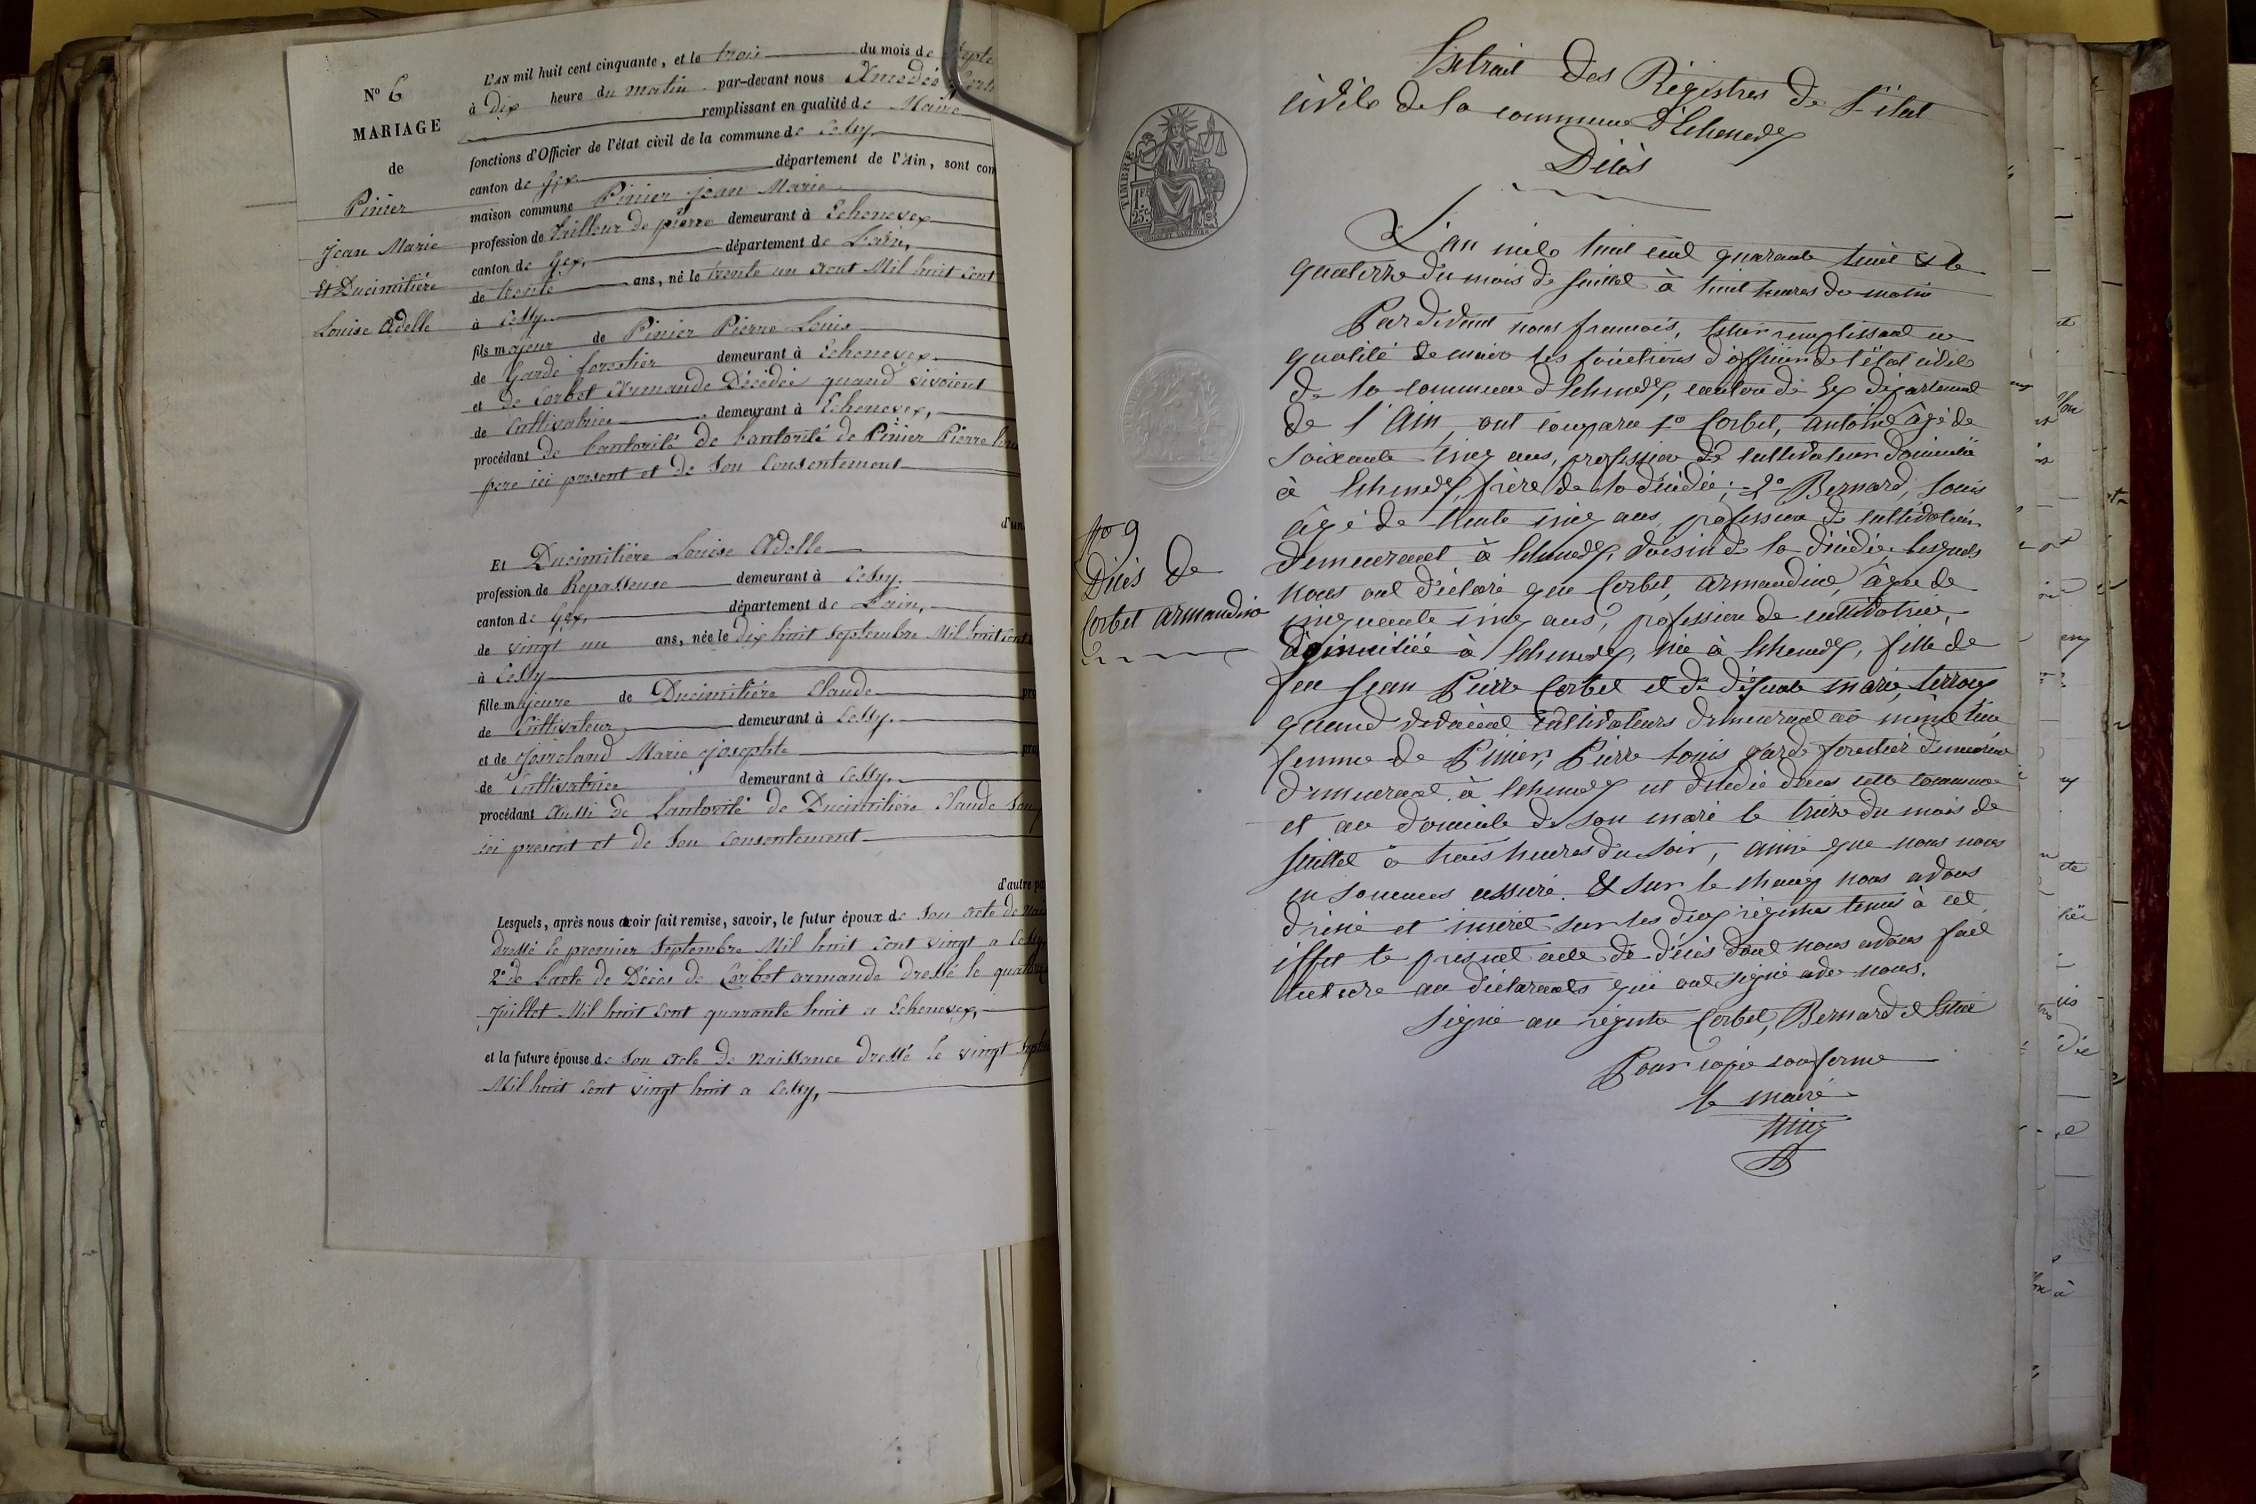 N° 6
MARIAGE
de
Pinier
Jean Marie
Et Ducimitière
Louise Adelle
L'AN mil huit cent cinquante, et le trois du mois de Septe
à dix heure du matin par-devant nous Amedée
remplissant en qualité de Maire
fonctions d'Officier de l'état civil de la commune de Cessy
canton de Gex département de l'Ain, sont com
maison commune Pinier Jean Marie
profession de tailleur de pierre demeurant à Echenevex
canton de Gex, département de L'ain,
de trente ans, né le trente un aout Mil huit cent
à Cessy
fils majeur de Pinier Pierre Louis
de Garde forestier demeurant à Echenevex
et de Corbet Armande Décédée quand vivoient
de Cultivatrice demeurant à Echenevex,
procédant de L'autorité de L'autorité de Pinier Pierre Lou
pere ici present et de Son Consentement
d'un
Et Ducimitière Louise Adelle
profession de Repasseuse demeurant à Cessy.
canton de Gex, département de L'ain,
de vingt un ans, née le dix huit septembre Mil huit cent
à Cessy
fille majeure de Ducimitière Claude pro
de Cultivateur demeurant à Cessy.
et de Josseland Marie Josephte pro
de Cultivatrice demeurant à Cessy.
procédant aussi de L'autorité de Ducimitière Claude Son
ici present et de Son Consentement
d'autre pa
Lesquels, après nous avoir fait remise, savoir, le futur époux de Son acte de Nais
dressé le premier Septembre Mil huit cent vingt a Cessy
2° de L'acte de Décès de Corbet armande dressé le quatorz
Juillet Mil huit cent quarante huit a Echenevex,
et la future épouse de Son acte de Naissance dressé le vingt Septe
Mil huit cent vingt huit a Cessy,
Extrait des Régistres de l'état
civile de la commune d'Echenevex
Décès
TIMBRE
1 F.
25 c.
L'an mile huit cent quarante huit & le
quatorze du mois de Juillet à huit heures du matin
Pardevant nous francois, remplissant en
qualité de maire les fonctions d'officier de l'état civile
de la commune d'Echenevex, canton de Gex département
de l'Ain, ont comparu 1° Corbet, antoine âgé de
soixante cinq ans, profession de cultivateur domicilié
à Echenevex, frère de la décédée; 2° Bernard, Louis
âgé de trente cinq ans, profession de cultivateur
demeurant à Echenevex, voisin de la décédée lesquels
nous ont déclaré que Corbet, armandine, âgée de
cinquante cinq ans, profession de cultivatrice,
domiciliée à Echenevex, née à Echenevex, fille de
feu Jean Pierre Corbet et de défunte marie
quand vivaient cultivateurs demeurant au même lieu
femme de Pinier, Pierre Louis garde forestier
demeurant à Echenevex est décédée dans cette commune
et au domicile de son mari le treize du mois de
Juillet à trois heures du soir, ainsi que nous nous
en sommes assuré. & sur le champ nous avons
dressé et inscrit sur les deux régistres tenus à cet
effet le présent acte de décès dont nous avons fait
lecture au déclarants qui ont signé avec nous.
Signé au régistre Corbet, Bernard &
Pour copie conforme
le maire
N° 9
Décès de
Corbet armandine